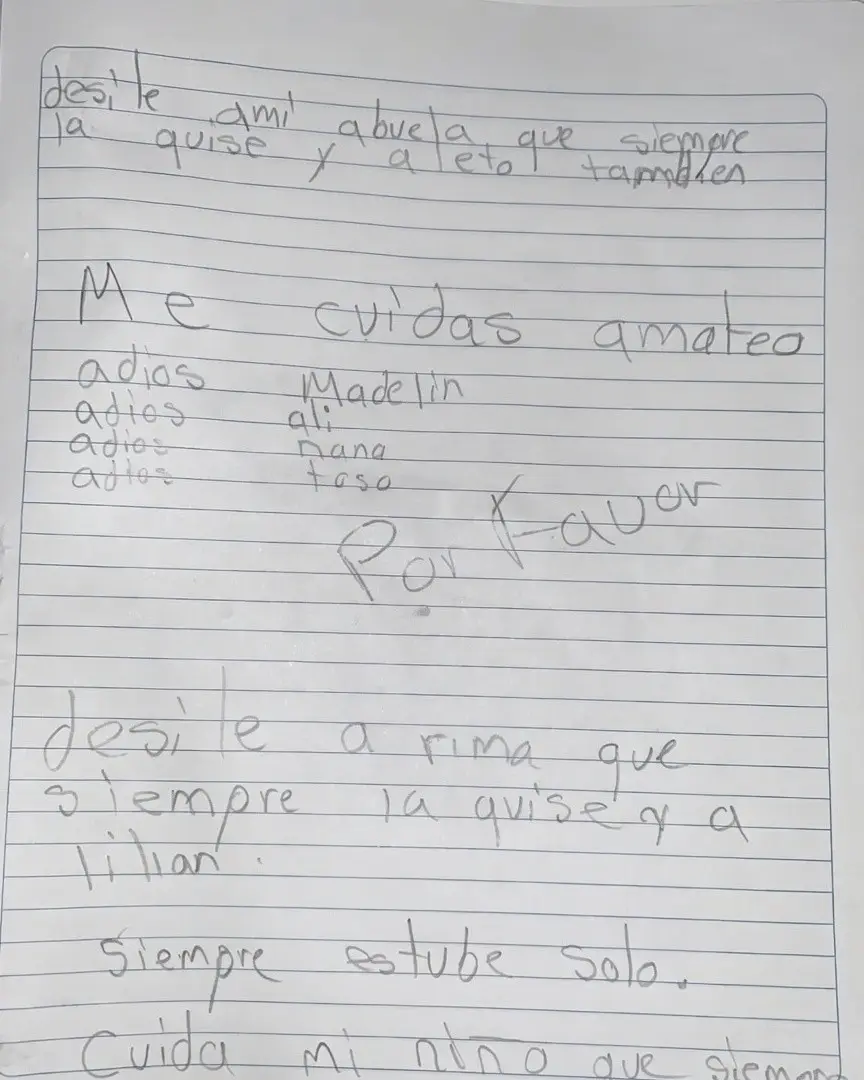 desile ami abuela que siempre
la quise y a leto tambien
Me cuidas amateo
adios Madelin
adios ali
adios nana
adios
Por Favor
desile a rima que
siempre la quise y a
lilian.
Siempre estube solo.
Cuida mi nino que siempre